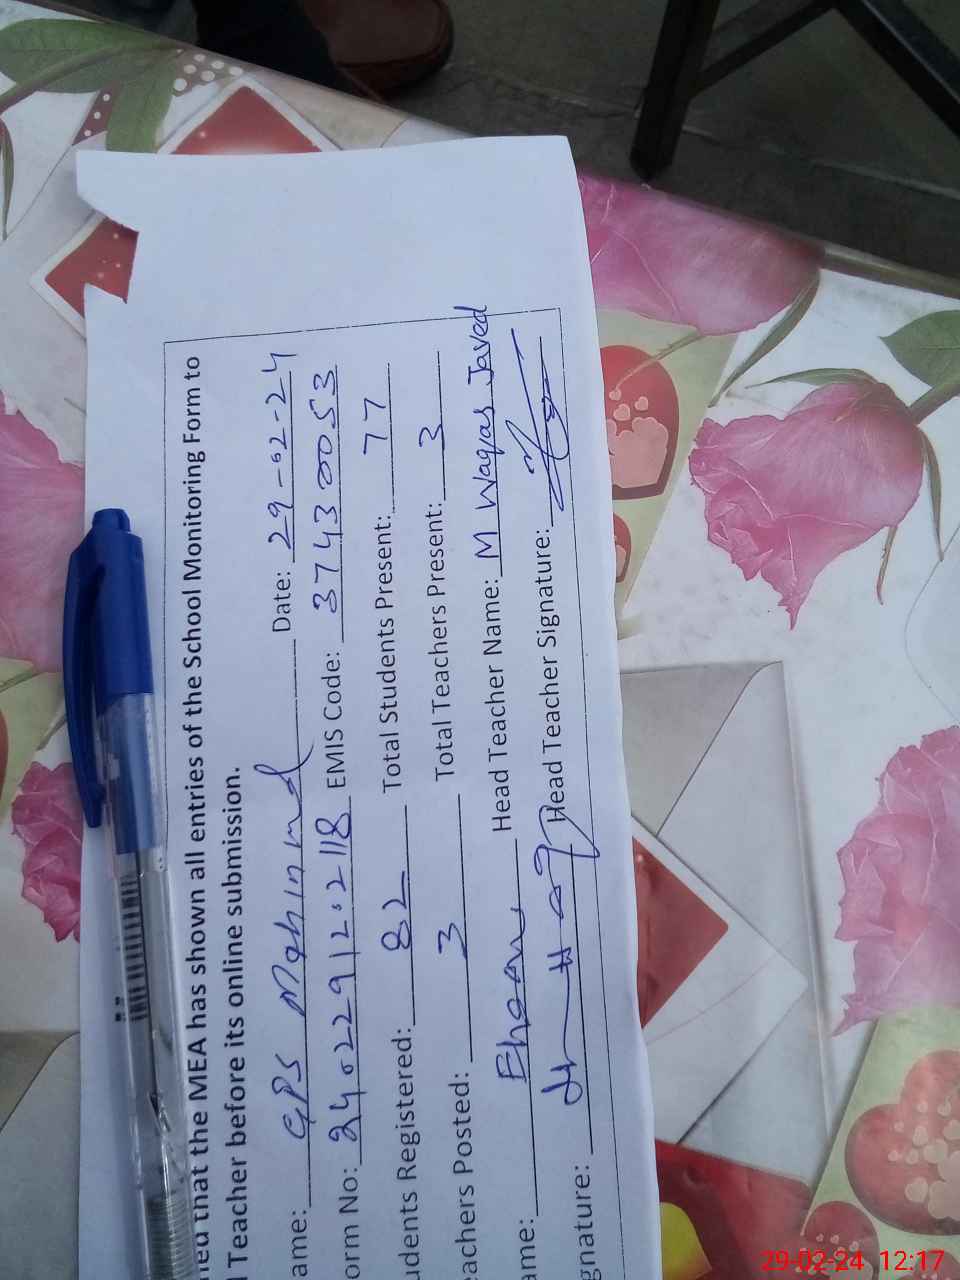 that the MEA has shown all entries of the School Monitoring Form to
Teacher before its online submission.
ame: GPS Mohin Date: 29-02-24
orm No: 2402291202118 EMIS Code: 37430053
udents Registered: 82 Total Students Present: 77
eachers Posted: 3 Total Teachers Present: 3
ame: Ehsan Head Teacher Name: M Waqas Javed
gnature: Head Teacher Signature:
29-02-24 12:17